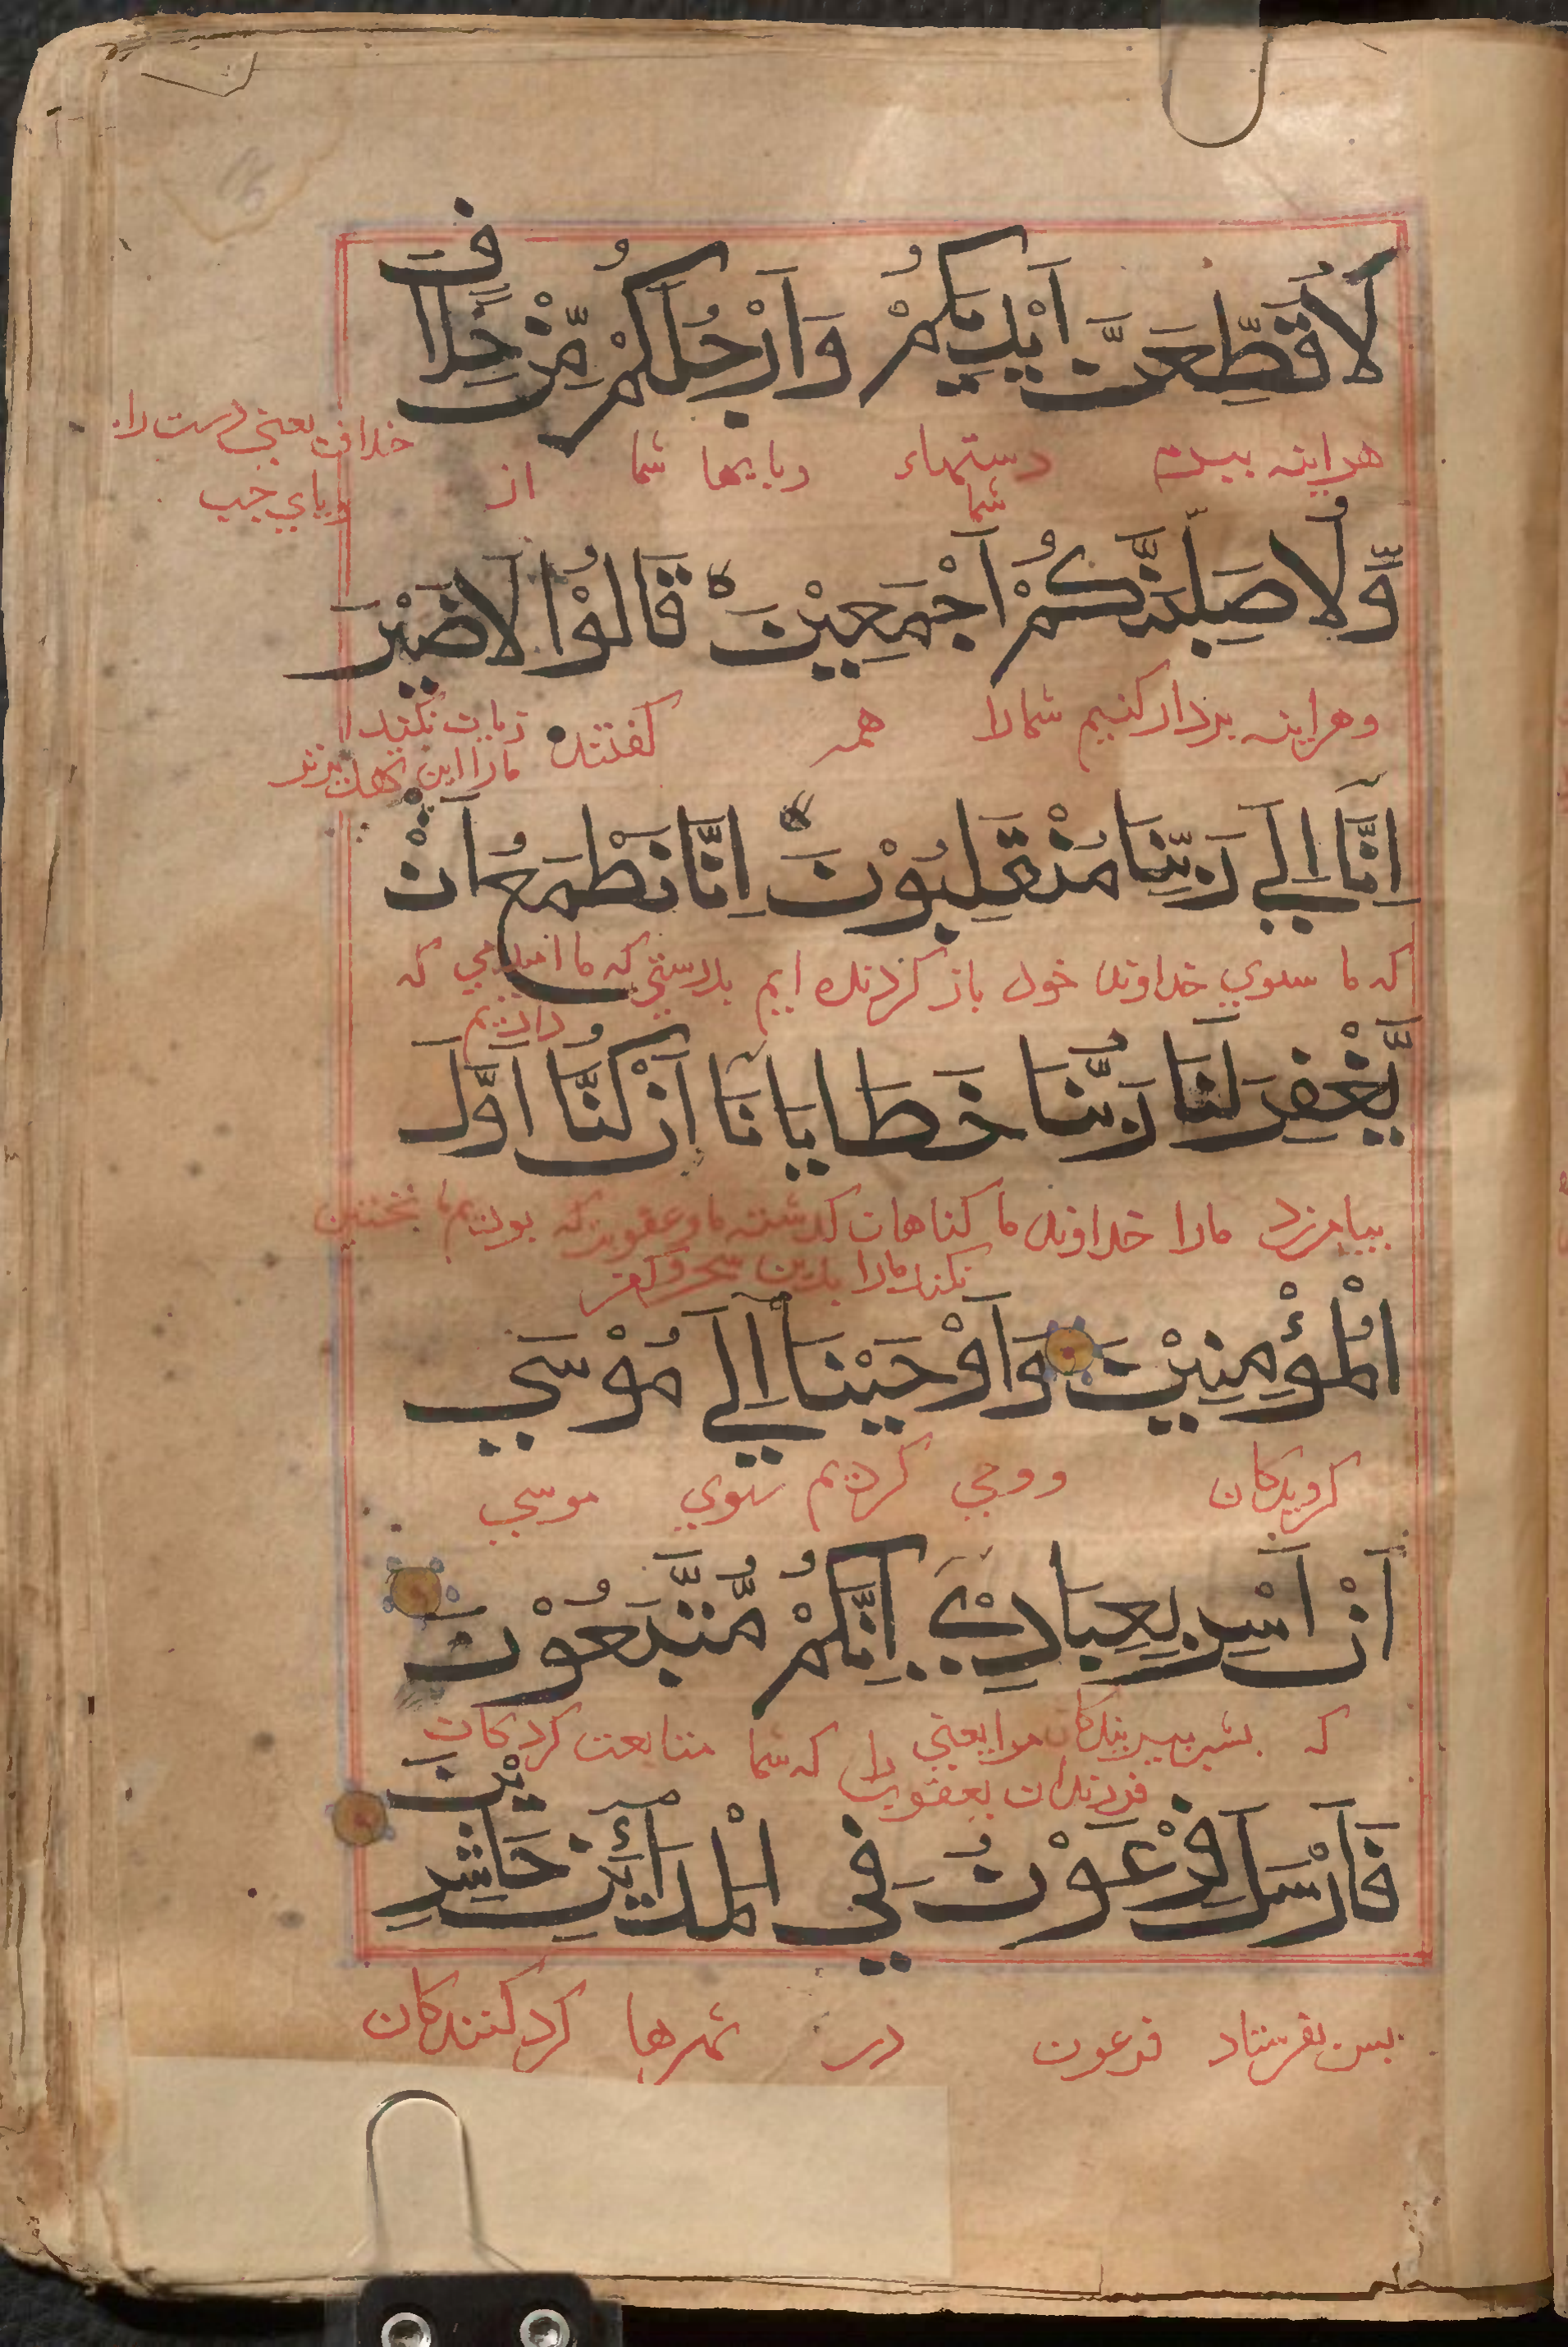 لَاُقَطِّعَنَّ اَيْدِيَكُمْ وَاَرْجُلَكُمْ مِّنْ خِلَافٍ
هراینه ببرم دستهاء شما وبایها شما از خلاف یعنی دست راست
وبای جب
وَّلَاُصَلِّبَنَّكُمْ اَجْمَعِيْنَ قَالُوْا لَاضَيْرَ
وهراینه بردار کنیم شمارا همه کفتند زیان نکند
مارا این
اِنَّآ اِلٰي رَبِّنَا مُنْقَلِبُوْنَ اِنَّا نَطْمَعُ اَنْ
که ما سوي خداوند خود باز کردنده ایم بدرستي که ما امید مي که
داریم
يَّغْفِرَ لَنَا رَبُّنَا خَطَايَانَآ اَنْ كُنَّا اَوَّلَ
بیامرزد مارا خداوند ما کناهان کذشته ما وعقوبت که بودیم ما نخستین
نکند مارا بدین سحر وکفر
الْمُؤْمِنِيْنَ وَاَوْحَيْنَآ اِلٰي مُوْسٰي
کرویدکان ووحي کردیم سوي موسي
اَنْ اَسْرِ بِعِبَادِيْٓ اِنَّكُمْ مُّتَّبَعُوْنَ
که بشب ببر بندکان مرا یعني که شما متابعت کردکان
فرزندان یعقوب را
فَاَرْسَلَ فِرْعَوْنُ فِي الْمَدَآئِنِ حَاشِرِيْنَ
بس بفرستاد فرعون در شهرها کرد کنندکان